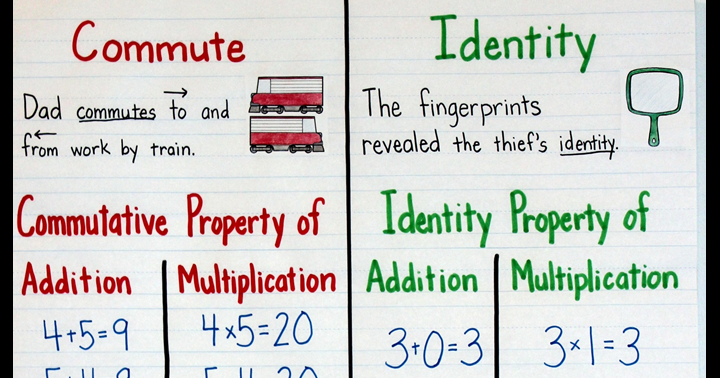 Commute
Dad commutes to and
from work by train.
Commutative Property of
Addition
Multiplication
4+5=9
4×5=20
Identity
The fingerprints
revealed the thief's identity.
Identity Property of
Addition
Multiplication
3+0=3
3×1=3